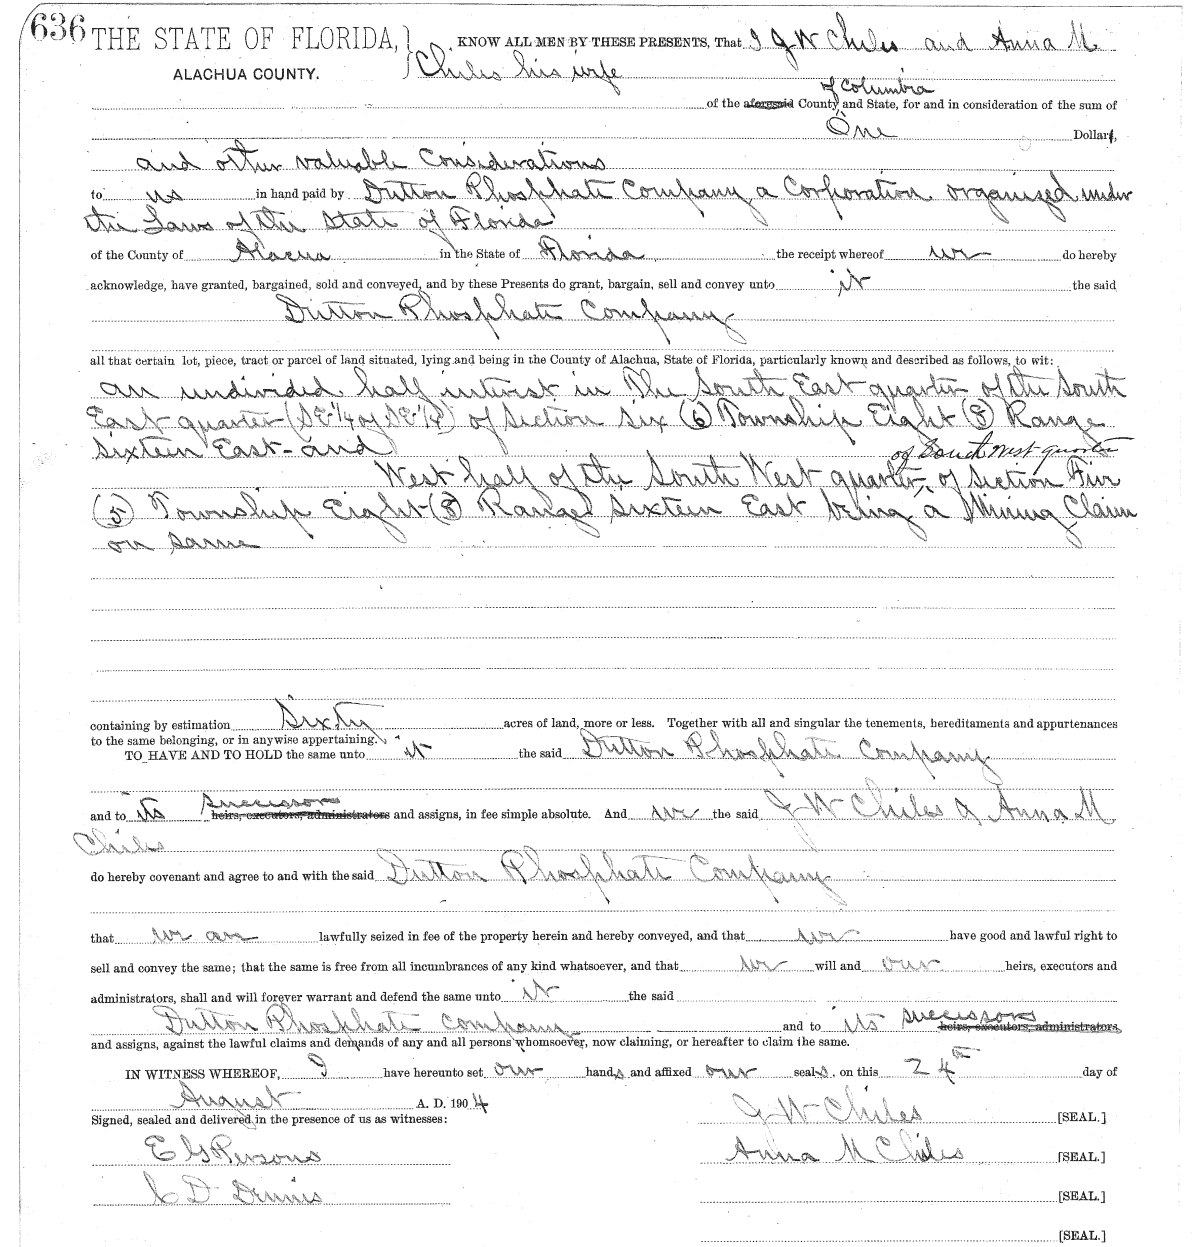 636 THE STATE OF FLORIDA, KNOW ALL MEN BY THESE PRESENTS, That I J W Chiles and Anna M
ALACHUA COUNTY. Chiles his wife
of Columbia
of the aforesaid County and State, for and in consideration of the sum of
One Dollars,
and other valuable Considerations
to us in hand paid by Dutton Phosphate Company a Corporation organized under
the Laws of the State of Florida
of the County of Alacua in the State of Florida the receipt whereof we do hereby
acknowledge, have granted, bargained, sold and conveyed, and by these Presents do grant, bargain, sell and convey unto it the said
Dutton Phosphate Company
all that certain lot, piece, tract or parcel of land situated, lying and being in the County of Alachua, State of Florida, particularly known and described as follows, to wit:
An undivided half interest in The South East quarter of the South
East quarter (SE 1/4 of SE 1/4) of Section Six (6) Township Eight (8) Range
Sixteen East and
of South West quarter
West half of the South West quarter of Section Five
(5) Township Eight (8) Range Sixteen East being a Mining Claim
on same
containing by estimation Sixty acres of land, more or less. Together with all and singular the tenements, hereditaments and appurtenances
to the same belonging, or in anywise appertaining.
TO HAVE AND TO HOLD the same unto it the said Dutton Phosphate Company
successors
and to its heirs, executors, administrators and assigns, in fee simple absolute. And we the said J W Chiles & Anna M
Chiles
do hereby covenant and agree to and with the said Dutton Phosphate Company
that we are lawfully seized in fee of the property herein and hereby conveyed, and that we have good and lawful right to
sell and convey the same; that the same is free from all incumbrances of any kind whatsoever, and that we will and our heirs, executors and
administrators, shall and will forever warrant and defend the same unto it the said
Dutton Phosphate Company and to its successors heirs, executors, administrators
and assigns, against the lawful claims and demands of any and all persons whomsoever, now claiming, or hereafter to claim the same.
IN WITNESS WHEREOF, I have hereunto set our hands and affixed our seals, on this 24th day of
August A. D. 1904
Signed, sealed and delivered in the presence of us as witnesses: J W Chiles [SEAL.]
E G Persons Anna M Chiles [SEAL.]
C D Dennis [SEAL.]
[SEAL.]